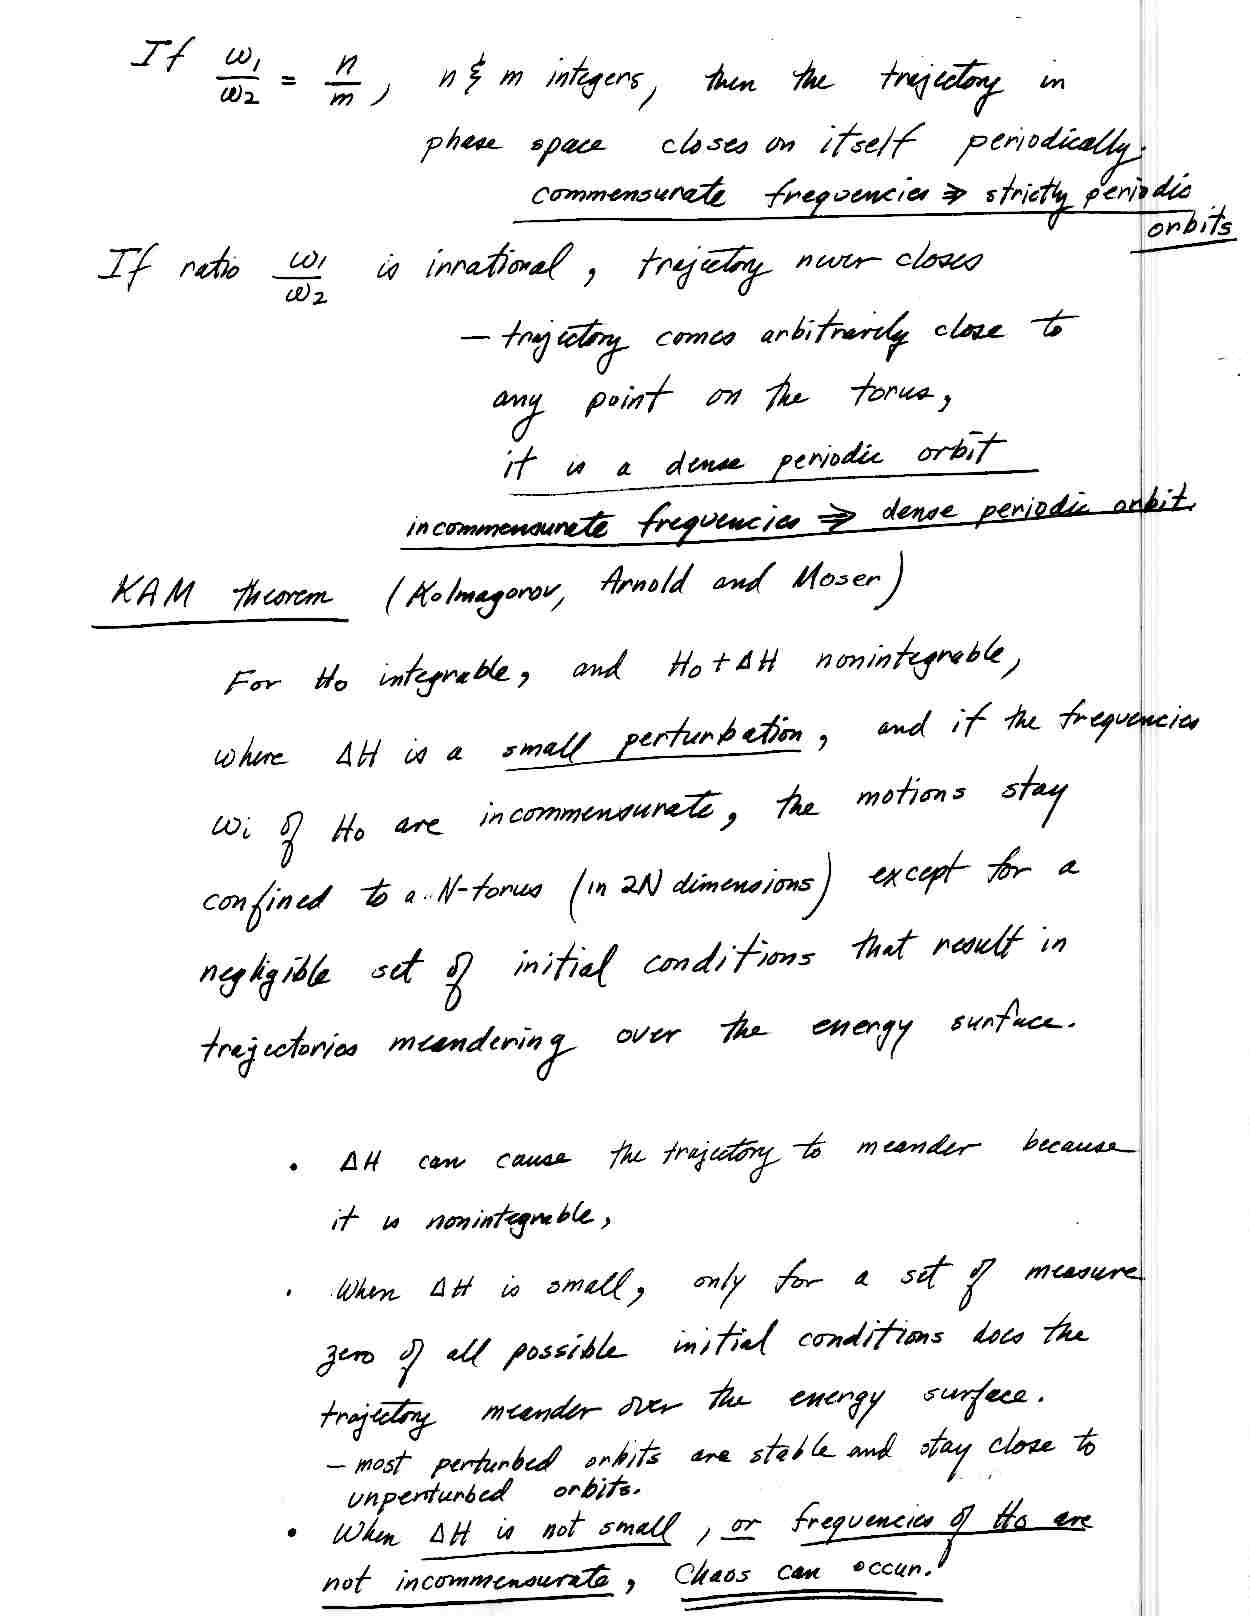 If ω1/ω2 = n/m, n & m integers, then the trajectory in
phase space closes on itself periodically.
commensurate frequencies ⇒ strictly periodic
orbits
If ratio ω1/ω2 is irrational, trajectory never closes
— trajectory comes arbitrarily close to
any point on the torus,
it is a dense periodic orbit
incommensurate frequencies ⇒ dense periodic orbit.
KAM theorem (Kolmagorov, Arnold and Moser)
For H0 integrable, and H0 + ΔH nonintegrable,
where ΔH is a small perturbation, and if the frequencies
ωi of H0 are incommensurate, the motions stay
confined to a N-torus (in 2N dimensions) except for a
negligible set of initial conditions that result in
trajectories meandering over the energy surface.
• ΔH can cause the trajectory to meander because
it is nonintegrable,
• When ΔH is small, only for a set of measure
zero of all possible initial conditions does the
trajectory meander over the energy surface.
— most perturbed orbits are stable and stay close to
unperturbed orbits.
• When ΔH is not small, or frequencies of H0 are
not incommensurate, Chaos can occur.